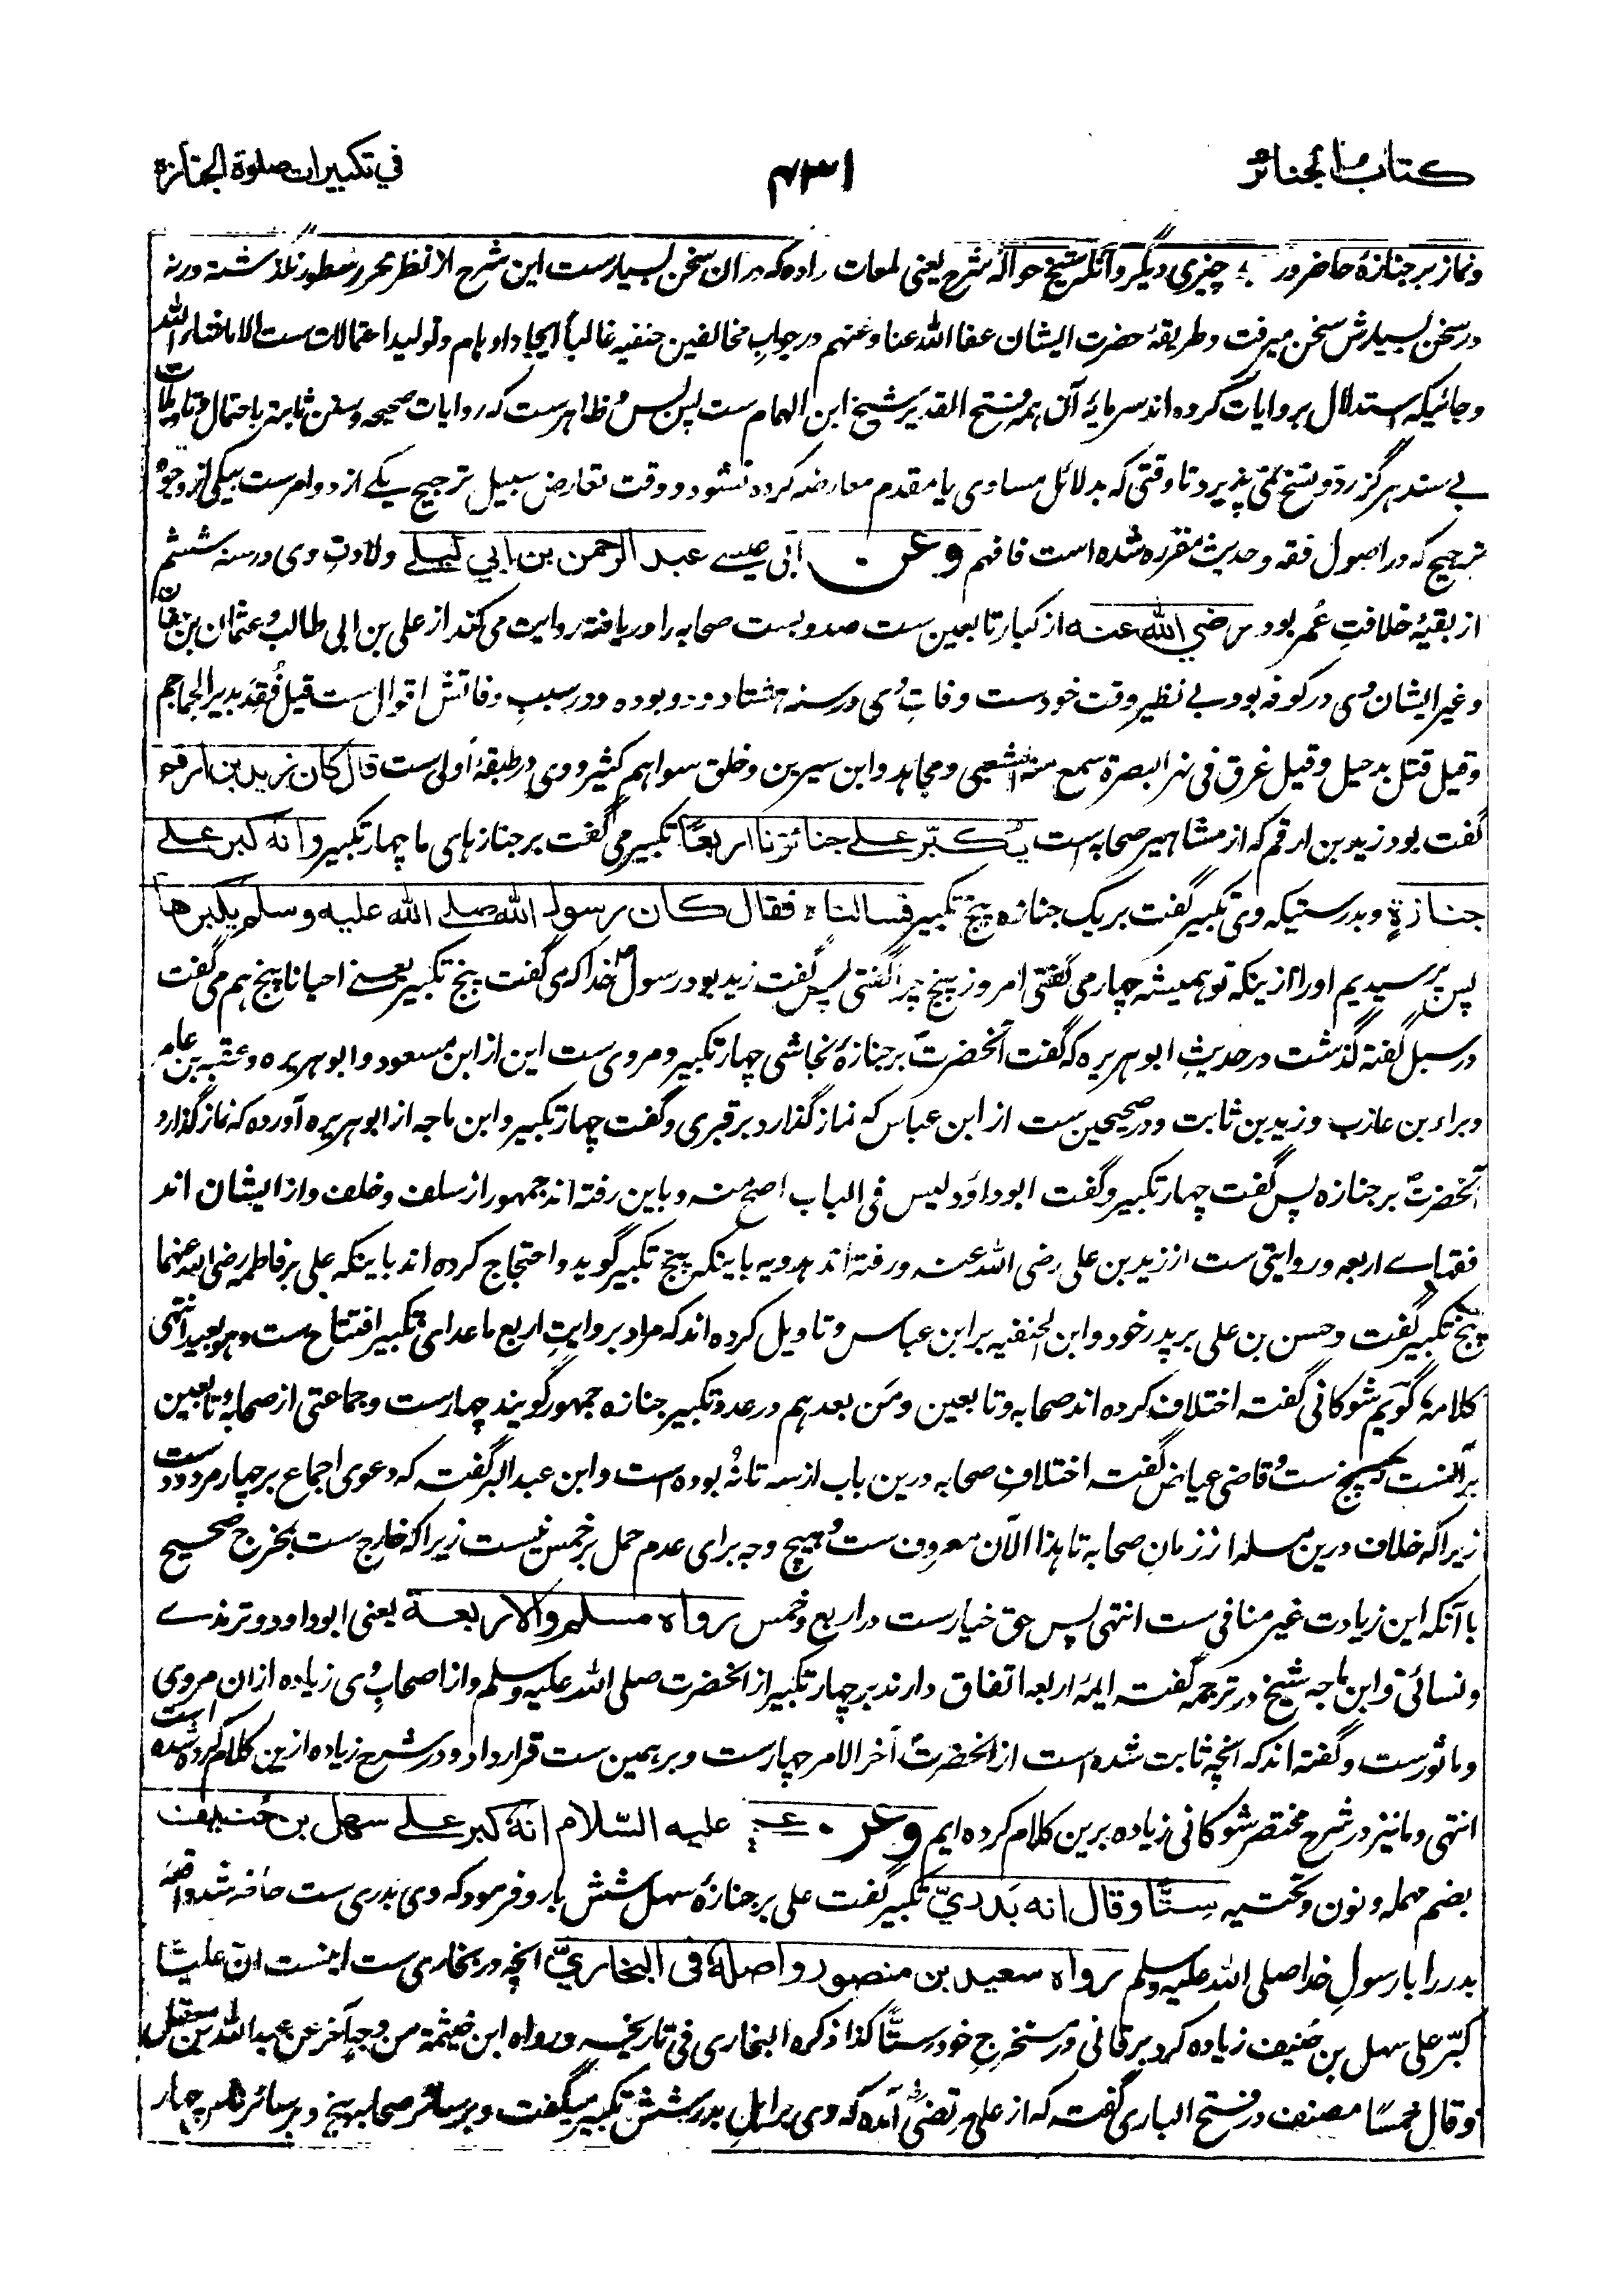 كتاب الجنائز
٤٣١
في تكبيرات صلوة الجنازة
ونماز بر جنازۀ حاضر ور چیزی دیگر وآنکه شیخ حوالۀ شرح یعنی لمعات داده که دران سخن بسیارست این شرح الا نظر محرر سطور نگذشته ورنه
در سخن بسیارش سخن میرفت وطریقۀ حضرت ایشان عفا الله عنا وعنهم در جواب مخالفین حنفیه غالباً ایجاد اوهام وتولید احتمالات ست الا ما شاء الله
وجائیکه استدلال بروایات کرده اند سرمایۀ آن همه فتح القدیر شیخ ابن الهمام ست پس پس ظاهرست که روایات صحیحه وسنن ثابته باحتمال وتاویلات
بے سند هرگز رد ونسخ نمی پذیرد تا وقتی که بدلائل مساوی یا مقدم معارضه کرده نشود ووقت تعارض سبیل ترجیح یکے از دو امرست بیکی از وجوه
ترجیح که در اصول فقه وحدیث مقرره شده است فافهم وعن ابی عیسے عبد الرحمن بن ابي ليلے ولادت وی در سنه ششم
از بقیۀ خلافت عمر بود رضي الله عنه از کبار تابعین ست صد وبست صحابه را دریافته روایت می کند از علی بن ابی طالب وعثمان بن عفان
وغیر ایشان وی در کوفه بود بے نظیر وقت خودست وفات وی در سنه هشتاد ودو بوده ودر سبب وفاتش اقوال ست قیل فُقِد بدیر الجماجم
وقیل قتل بدجیل وقیل غرق فی نهر البصرة سمع منه الشعبی ومجاهد وابن سیرین وخلق سواهم کثیر ووی در طبقۀ اولی ست قال كان زيد بن ارقم
گفت بود زید بن ارقم که از مشاهیر صحابه است يكبّر علے جنائزنا اربعًا تکبیر می گفت بر جنازهای ما چهار تکبیر وانه كبر علے
جنازة وبدرستیکه وی تکبیر گفت بر یک جنازه پنج تکبیر فسالناه فقال كان رسول الله صلے الله عليه وسلم يكبرها
پس پرسیدیم او را ازینکه تو همیشه چهار می گفتی امروز پنج چرا گفتی پس گفت زید بود رسول خدا که می گفت پنج تکبیر یعنے احیانا پنج هم می گفت
در سبل گفته گذشت در حدیث ابو هریره که گفت آنحضرتؐ بر جنازۀ نجاشی چهار تکبیر ومروی ست این از ابن مسعود وابو هریره وعقبه بن عامر
وبراء بن عازب وزید بن ثابت ودر صحیحین ست از ابن عباس که نماز گذارد بر قبری وگفت چهار تکبیر وابن ماجه از ابو هریره آورده که نماز گذارد
آنحضرتؐ بر جنازه پس گفت چهار تکبیر وگفت ابو داؤد لیس فی الباب اصح منه وباین رفته اند جمهور از سلف وخلف واز ایشان اند
فقهاے اربعه وروایتی ست از زید بن علی رضی الله عنه ورفته اند هدویه باینکه پنج تکبیر گوید واحتجاج کرده اند باینکه علی بر فاطمه رضی الله عنهما
پنج تکبیر گفت وحسن بن علی بر پدر خود وابن الحنفیه بر ابن عباس وتاویل کرده اند که مراد بروایت اربع ماعدای تکبیر افتتاح ست وهو بعید انتهی
کلامه گویم شوکانی گفته اختلاف کرده اند صحابه وتابعین ومَن بعد هم در عدد تکبیر جنازه جمهور گویند چهارست وجماعتی از صحابه وتابعین
برآنست که پنج ست وقاضی عیاض گفته اختلاف صحابه درین باب از سه تا نُه بوده است وابن عبد البر گفته که دعوی اجماع بر چهار مردودست
زیراکه خلاف درین مسله از زمان صحابه تا هذا الآن معروف ست وهیچ وجه برای عدم حمل بر خمس نیست زیراکه خارج ست بمخرج صحیح
با آنکه این زیادت غیر منافی ست انتهی پس حق خیارست در اربع وخمس رواه مسلم والاربعة یعنی ابو داود وترمذے
ونسائی وابن ماجه شیخ در ترجمه گفته ایمۀ اربعه اتفاق دارند بر چهار تکبیر از آنحضرت صلی الله علیه وسلم واز اصحاب وی زیاده ازان مروی است
وماثورست وگفته اند که آنچه ثابت شده است از آنحضرت آخر الامر چهارست وبر همین ست قرار داد ودر شرح زیاده ازین کلام کرده شده
انتهی وما نیز در شرح مختصر شوکانی زیاده برین کلام کرده ایم وعن علے عليه السّلام انه كبر علے سهل بن حُنيف
بضم مهمله ونون وتحتیه ستًّا وقال انه بَدريّ تکبیر گفت علی بر جنازۀ سهل شش بار وفرمود که وی بدری ست حاضر شد واقعۀ
بدر را با رسول خدا صلی الله علیه وسلم رواه سعيد بن منصور واصله فى البخاريّ آنچه در بخاری ست اینست انّ علیّا
کبّر علی سهل بن حُنیف زیاده کرد برقانی در مستخرج خود ستًّا کذا ذکره البخاری فی تاریخه ورواه ابن خیثمة من وجه آخر عن عبد الله بن مغفل
وقال خمسًا مصنف در فتح الباری گفته که از علی مرتضی آمده که وی بر اهل بدر شش تکبیر میگفت وبر سائر صحابه پنج وبر سائر ناس چهار